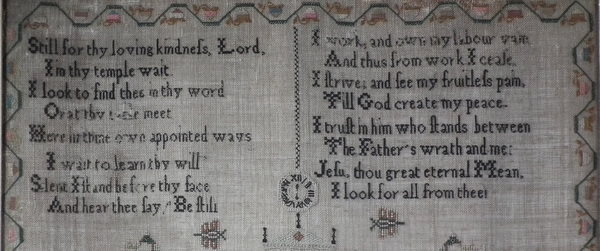 Still for thy loving kindneſs, Lord,
I in thy temple wait
I look to find thee in thy word
Or at thy table meet
Here in thine own appointed ways
I wait to learn thy will
Silent I ſit and before thy face
And hear thee ſay, "Be ſtill
I work, and own my labour vain
And thus from work I ceaſe,
I ſtrive, and ſee my fruitleſs pain,
Till God create my peace.
I truſt in him who ſtands between
The Father's wrath and me:
Jeſu, thou great eternal Mean,
I look for all from thee!